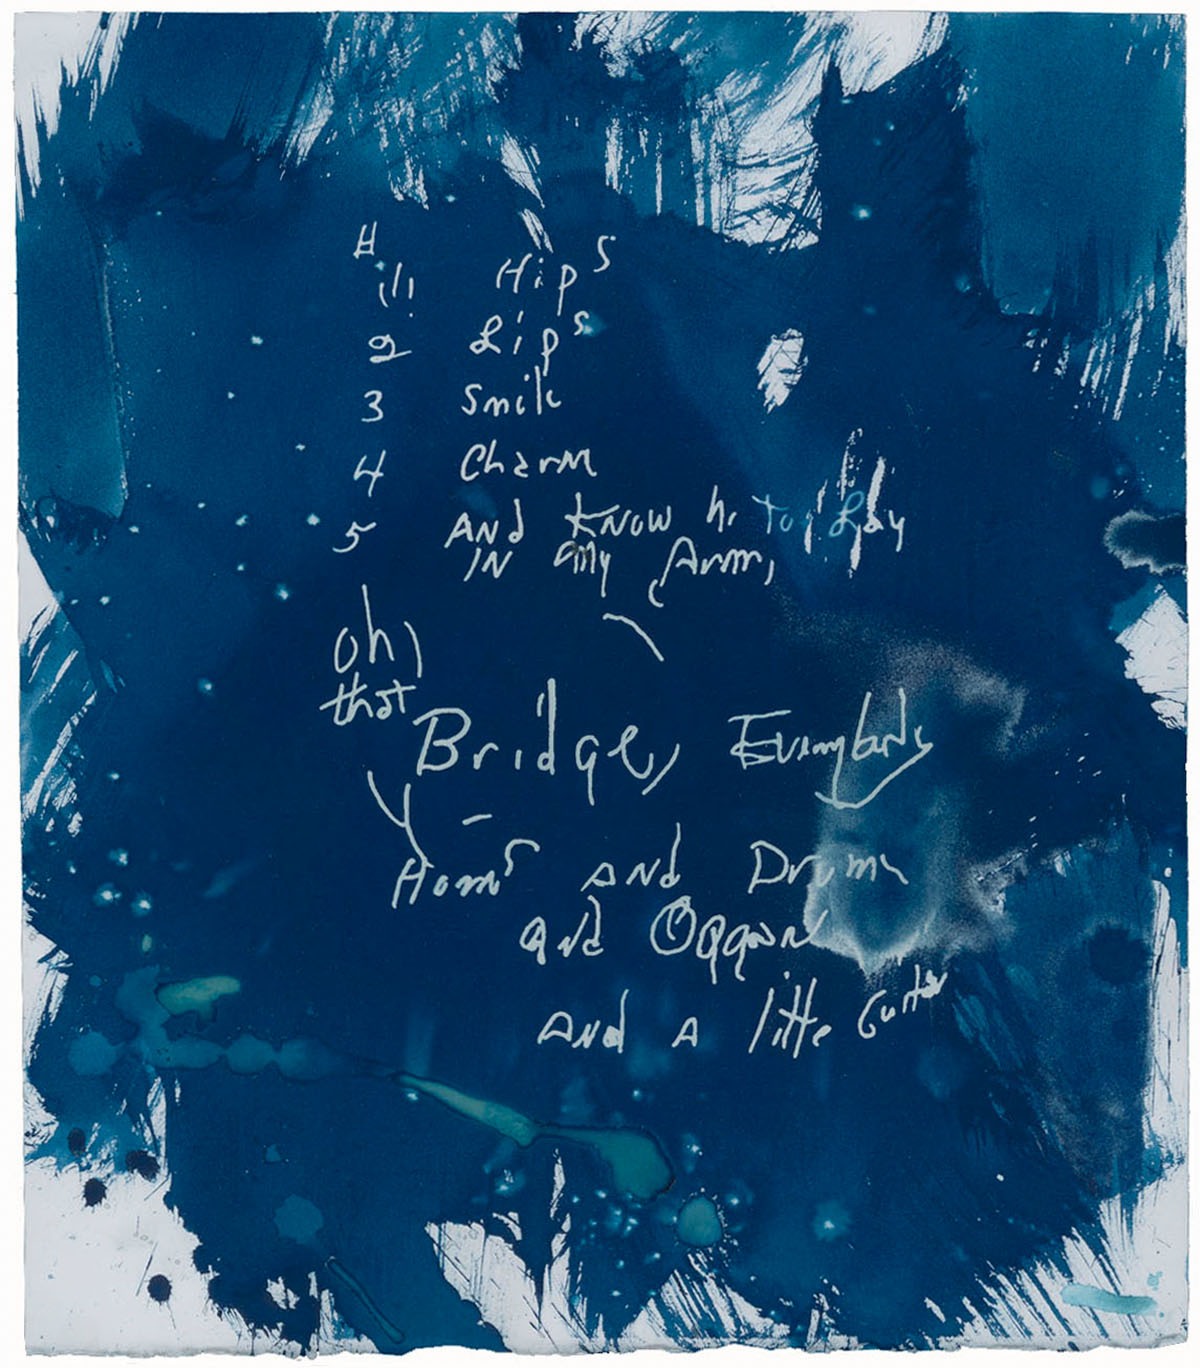 # 1 Hips
2 Lips
3 Smile
4 Charm
5 AND KNOW h. To Lay
IN My Arms
oh,
that
Bridge, Everybody
Horns AND Drums
and Organ
AND A little Guitar